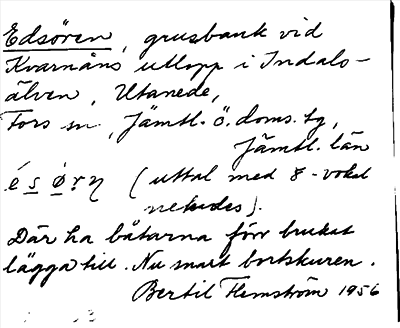 Edsören, grusbank vid
Kvarnåns utlopp i Indals-
älven, Utanede,
Fors sn, Jämtl. ö. doms. tg,
Jämtl. län
é s ø̀ r η (uttal med 8-vokal
nekades).
Där ha båtarna förr brukat
lägga till. Nu snart bortskuren.
Bertil Flemström 1956